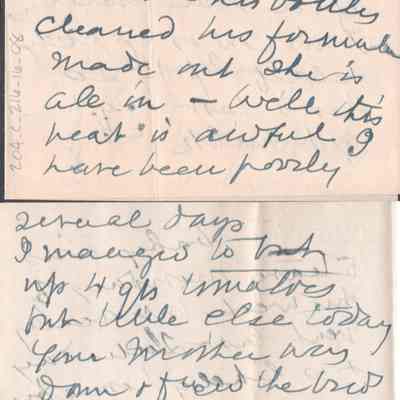 his bottles
cleaned his formula
made out she is
ale in - Well this
heat is awful I
have been poorly
several days
I managed to put
up 4 qts tomatoes
but little else today
your mother was
down & fixed the bed
204-C-216-16-08